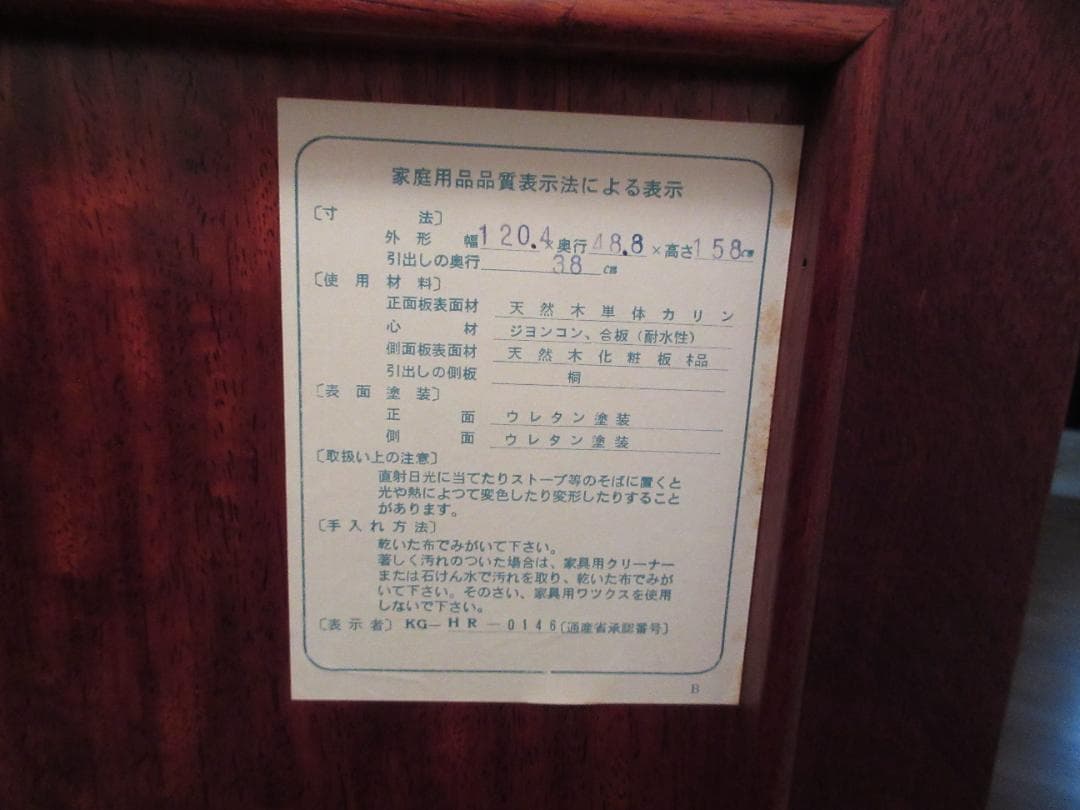 家庭用品品質表示法による表示
〔寸法〕
外形 幅120.4×奥行48.8×高さ158cm
引出しの奥行 38cm
〔使用材料〕
正面板表面材 天然木単体カリン
心材 ジョンコン、合板(耐水性)
側面板表面材 天然木化粧板
引出しの側板 桐
〔表面塗装〕
正面 ウレタン塗装
側面 ウレタン塗装
〔取扱い上の注意〕
直射日光に当てたりストーブ等のそばに置くと
光や熱によつて変色したり変形したりすること
があります。
〔手入れ方法〕
乾いた布でみがいて下さい。
著しく汚れのついた場合は、家具用クリーナー
または石けん水で汚れを取り、乾いた布でみが
いて下さい。そのさい、家具用ワツクスを使用
しないで下さい。
〔表示者〕KG-HR-0146〔通産省承認番号〕
B